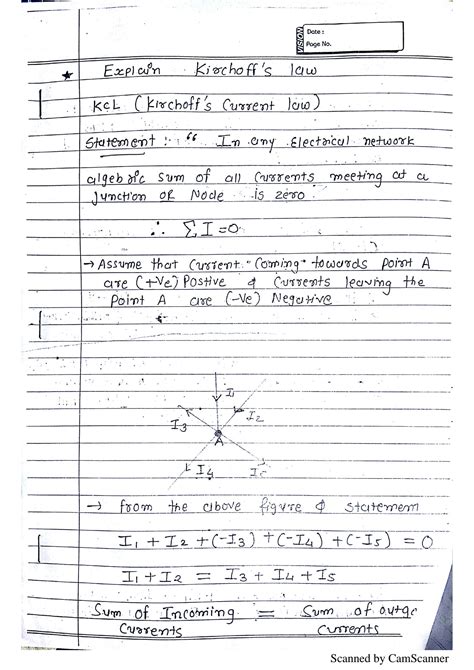 VISION
Date :
Page No.
★ Explain Kirchoff's law
KCL (Kirchoff's Current law)
Statement : " In any Electrical network
algebric sum of all Currents meeting at a
junction OR Node is zero
∴ Σ I = 0
→ Assume that Current "Coming" towards point A
are (+Ve) Postive & Currents leaving the
Point A are (-Ve) Negative
I1
I2
I3
A
I4
→ from the above figure & statemem
I1 + I2 + (-I3) + (-I4) + (-I5) = 0
I1 + I2 = I3 + I4 + I5
Sum of Incoming = Sum of outgo
Currents Currents
Scanned by CamScanner